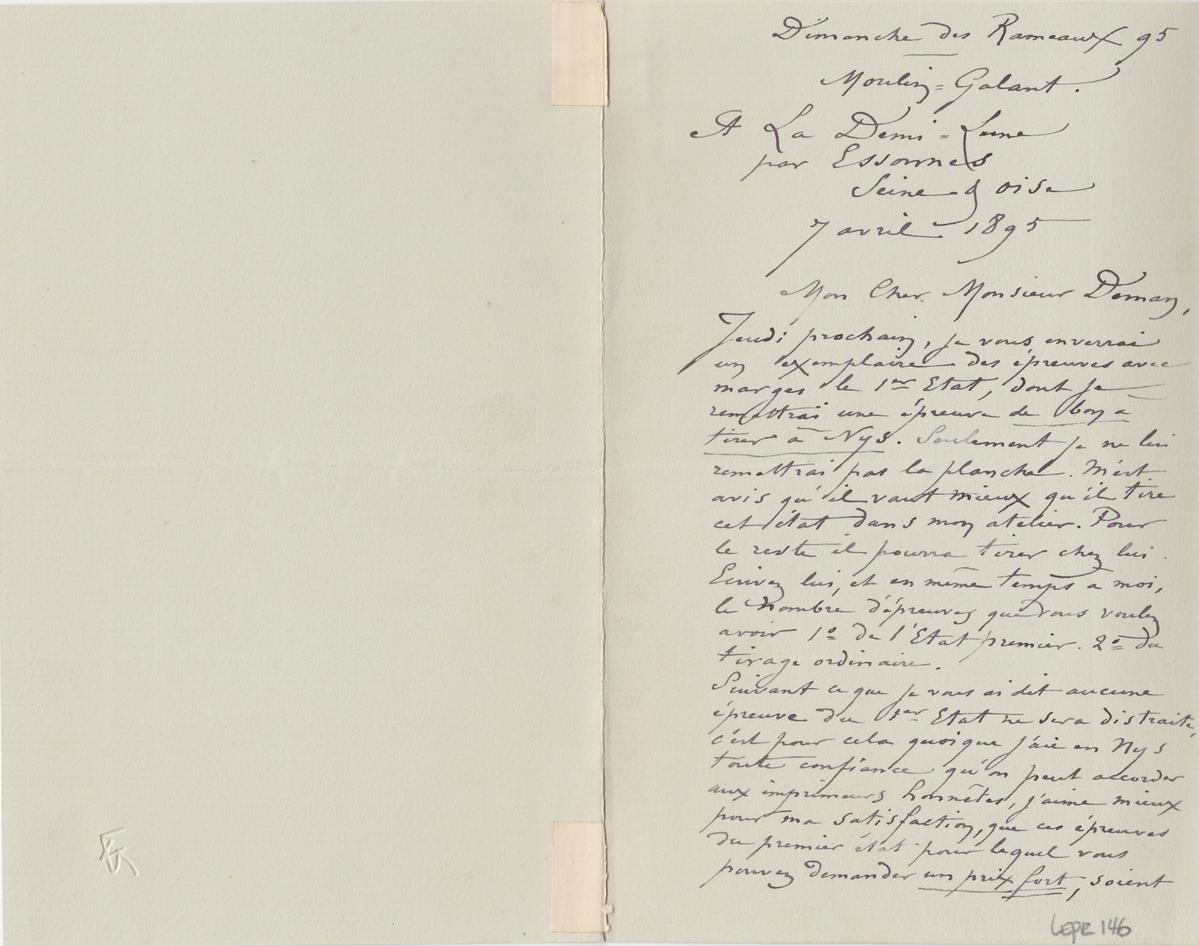 Dimanche des Rameaux 95
Moulin-Galant.
A La Demi-Lune
par Essonnes
Seine & oise
7 avril 1895
Mon Cher Monsieur Deman,
Jeudi prochain, je vous enverrai
un exemplaire des épreuves avec
marges le 1er Etat, dont je
remettrai une épreuve de bon à
tirer à Nys. Seulement je ne lui
remettrai pas la planche. M'est
avis qu'il vaut mieux qu'il tire
cet état dans mon atelier. Pour
le reste il pourra tirer chez lui.
Ecrivez lui, et en même temps a moi,
le Nombre d'épreuves que vous voulez
avoir 1º de l'Etat premier. 2º du
tirage ordinaire.
Suivant ce que je vous ai dit aucune
épreuve du 1er Etat ne sera distraite,
c'est pour cela quoique j'aie en Nys
toute confiance qu'on peut accorder
aux imprimeurs honnêtes, j'aime mieux
pour ma satisfaction, que ces épreuves
du premier état pour lequel vous
pouvez demander un prix fort, soient
Lepr 146